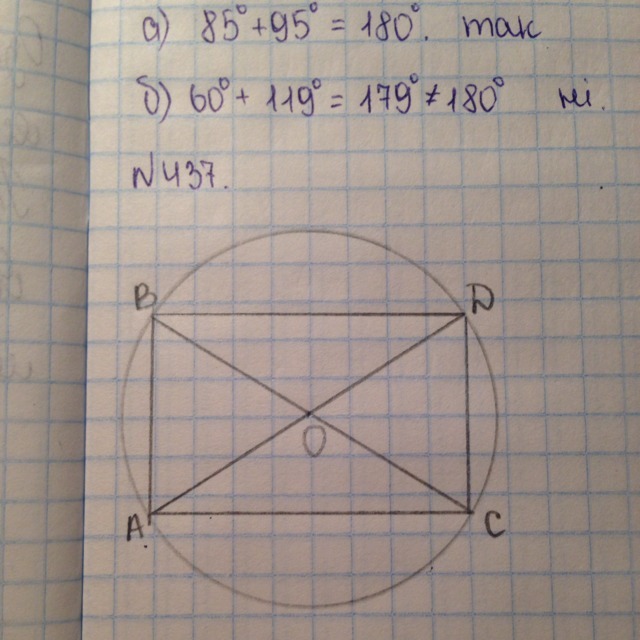 а) 85° + 95° = 180°. так
б) 60° + 119° = 179° ≠ 180° ні.
№437.
B D
O
A C